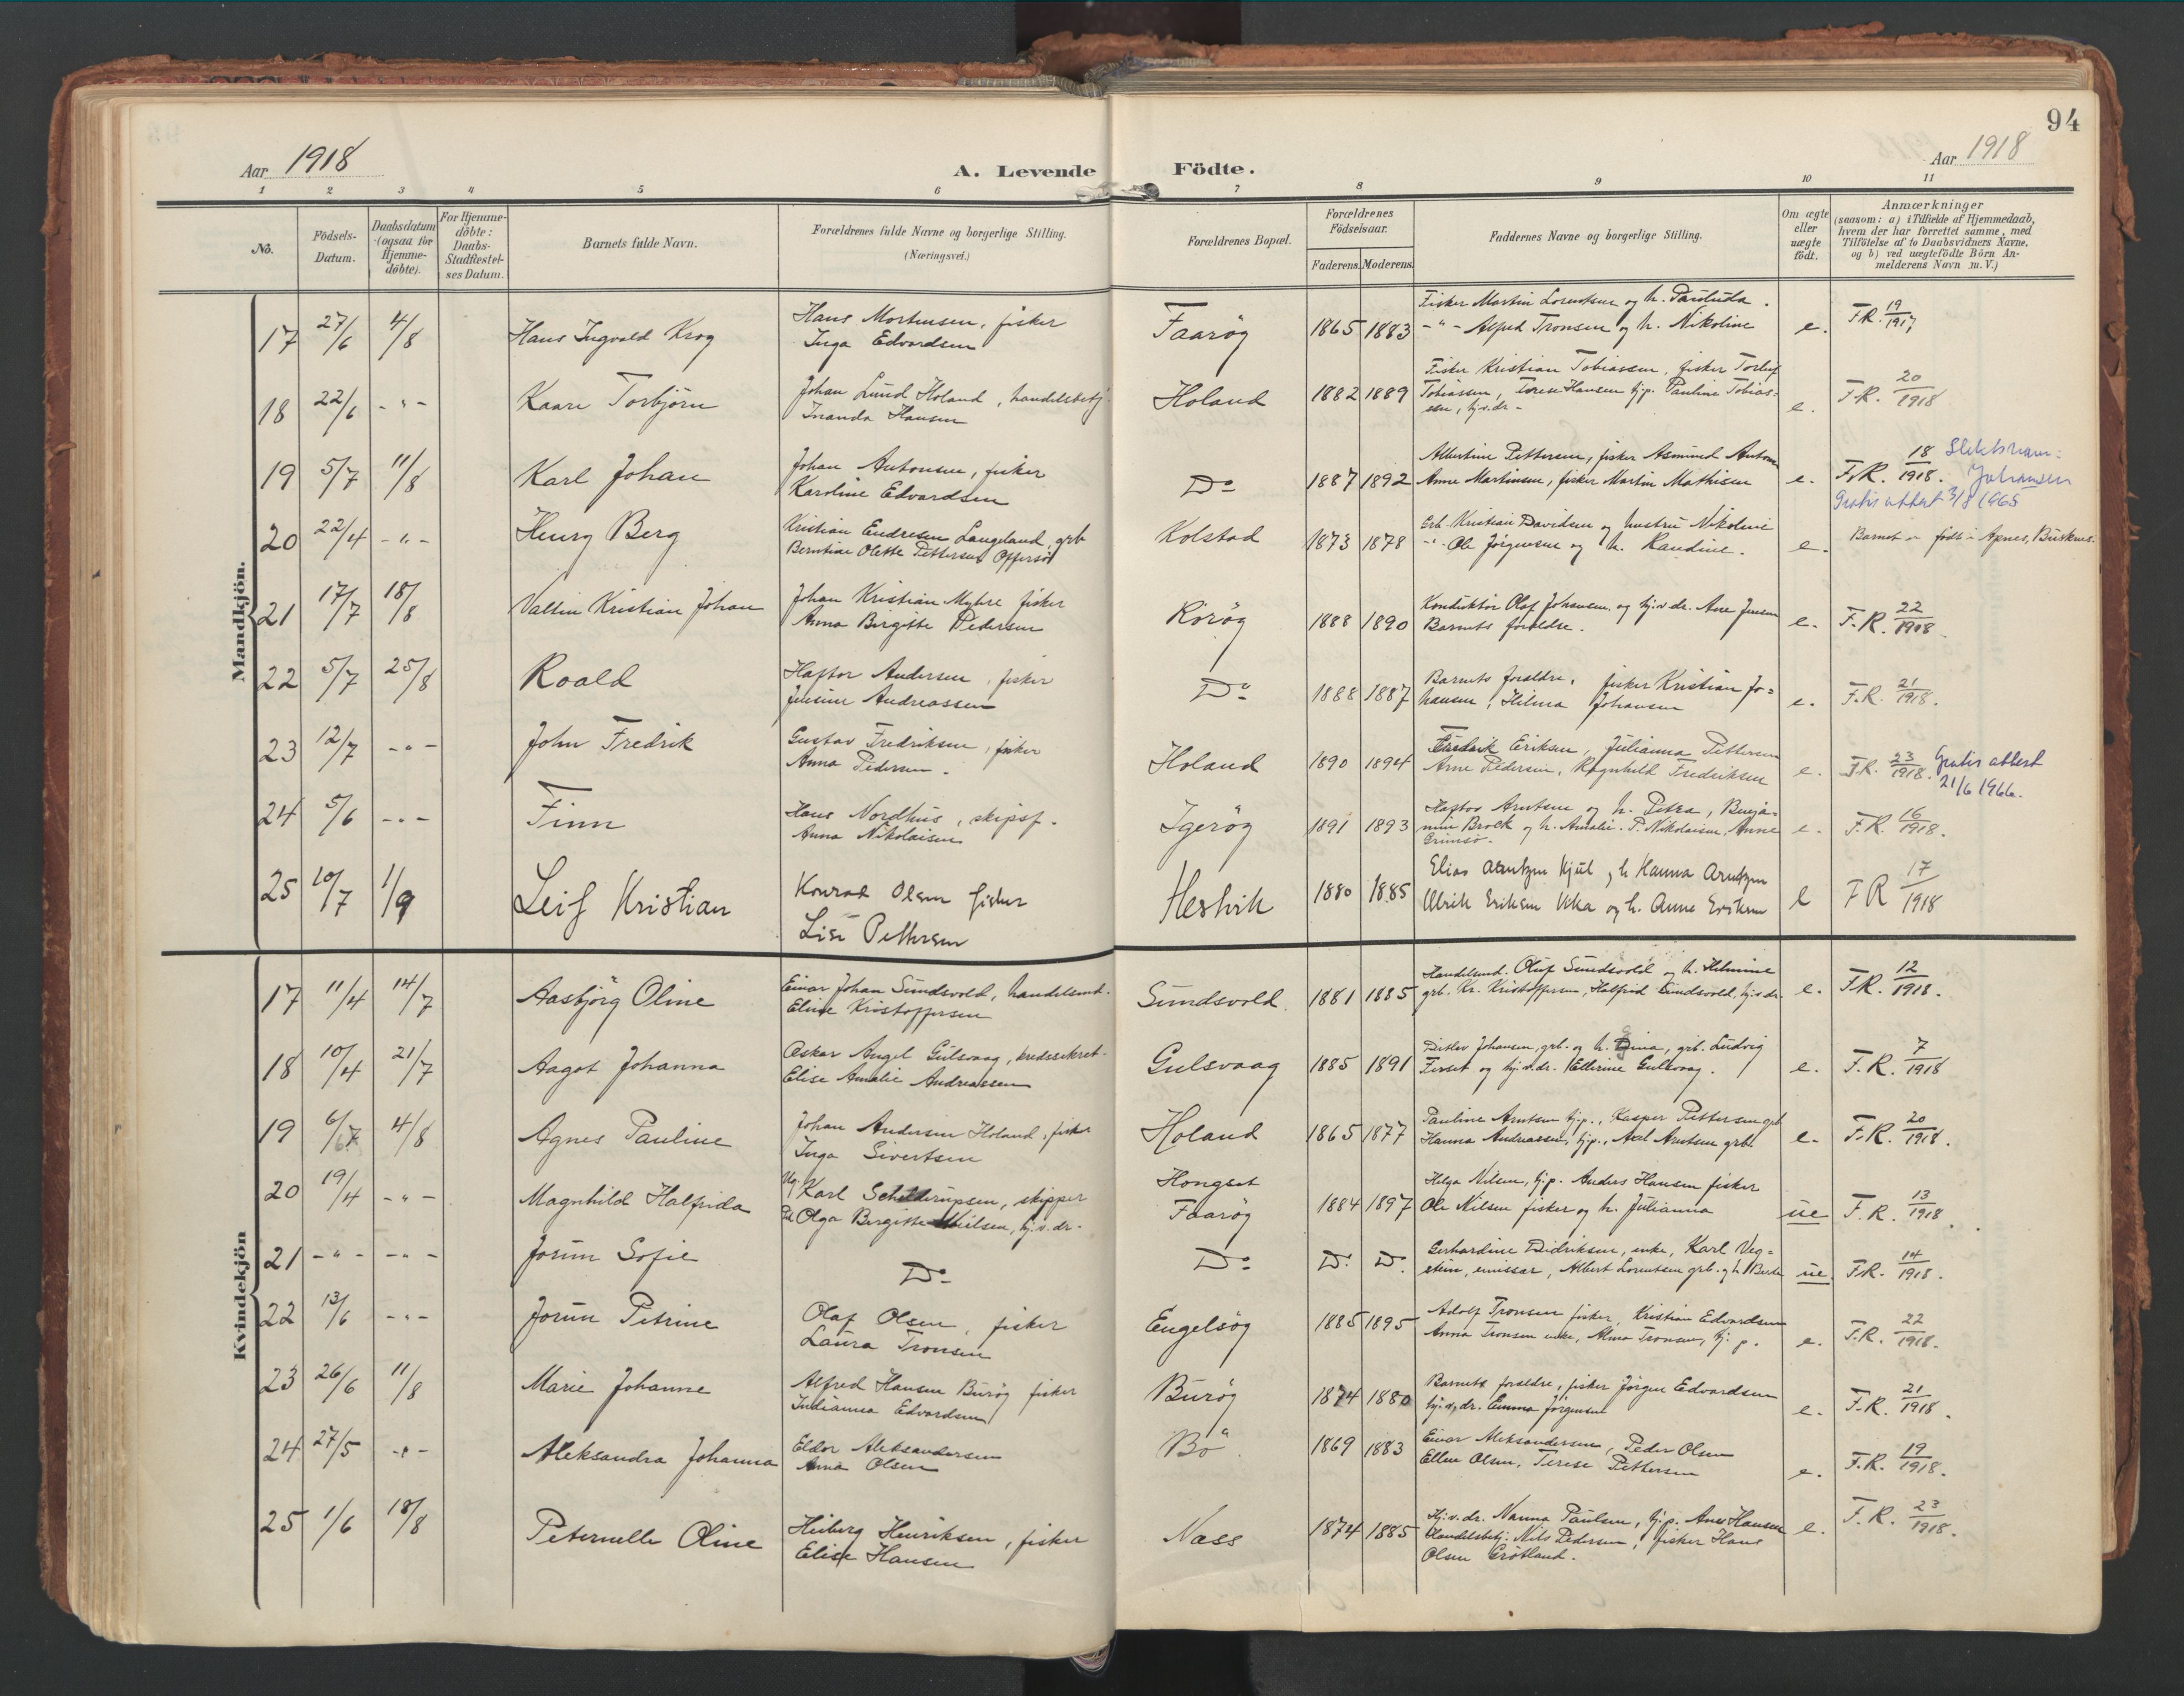 94
Aar 1918
A. Levende Födte.
Aar 1918
1 2 3 4 5 6 7 8 9 10 11
No.
Födsels-Datum.
Daabsdatum (ogsaa for Hjemme-döbte).
For Hjemme-döbte: Daabs-Stadfæstel-ses Datum.
Barnets fulde Navn.
Forældrenes fulde Navne og borgerlige Stilling. (Næringsvei.)
Forældrenes Bopæl.
Forældrenes Födselsaar.
Faderens. Moderens.
Faddernes Navne og borgerlige Stilling.
Om ægte eller uægte födt.
Anmærkninger (saasom: a) i Tilfælde af Hjemmedaab, hvem der har forrettet samme, med Tilföielse af to Daabsvidners Navne, og b) ved uægtefödte Börn Anmelderens Navn m. V.)
Mandkjön.
17 27/6 4/8 Hans Ingvald Krog
Hans Mortensen, fisker
Inga Edvardsen
Faaröy 1865 1883
Fisker Martin Lorentsen og h.
-"- Alfred Tronsen og h. Nikoline
e. F.R. 19/1917
18 22/6 -"- Kaare Torbjörn
Johan Lund Holand, handelsbetj.
Inanda Hansen
Holand 1882 1889
Fisker Kristian Tobiassen, fisker Torleif
Tobiassen, Terese Hansen tj.p. Pauline Tobias-
sen, hj.v.dr.
e. F.R. 20/1918
19 5/7 11/8 Karl Johan
Johan Antonsen, fisker
Karoline Edvardsen
Do 1887 1892
Albertine Pettersen, fisker Asmund Anton
Anne Martinsen, fisker Martin Mathisen
e. F.R. 18/1918. Slektsnavn: Johansen
Gratis attest 3/8 1965
20 22/4 -"- Henry Berg
Kristian Endresen Langeland, grb
Berntine Olette Pettersen Offersöi
Kolstad 1873 1878
Grb. Kristian Davidsen og hustru Nikoline
-"- Ole Jörgensen og h. Randine.
e. Barnet er födt i Apnes, Busknes.
21 17/7 18/8 Valtin Kristian Johan
Johan Kristian Myhre fisker
Anna Birgitte Pedersen
Röröy 1888 1890
Konduktör Olaf Johansen og hj.v.dr. Ane Jensen
Barnets foreldre.
e. F.R. 22/1918.
22 5/7 25/8 Roald
Haftor Andersen, fisker
Jensine Andreassen
Do 1888 1887
Barnets foreldre, fisker Kristian Jo=
hansen, Hilma Johansen
e. F.R. 21/1918.
23 12/7 -"- John Fredrik
Gustav Fredriksen, fisker
Anna Pedersen.
Holand 1890 1894
Fredrik Eriksen, Julianna Pettersen
Arne Pedersen, Ragnhild Fredriksen
e. F.R. 23/1918. Gratis attest
21/6 1966.
24 5/6 -"- Finn
Hans Nordhus, skipsf.
Anna Nikolaisen
Igeröy 1891 1893
Haftor Arntsen og h. Petra, Benja-
min Brock og h. Amalie. P. Nikolaisen, Anne
Grimsö.
e. F.R. 16/1918.
25 10/7 1/9 Leif Kristian
Konrad Olsen fisker
Lise Pettersen
Hestvik 1880 1885
Elias Arntzen Kjul og h Hanna Arntzen
Ulrik Eriksen Vika og h. Anne Eriksen
e F R 17/1918
Kvindekjön
17 11/4 14/7 Aasbjörg Oline
Einar Johan Sundsvold, handelsmd.
Elise Kristoffersen
Sundsvold 1881 1885
Handelsmd. Oluf Sundsvold og h. Helmine
grb. Kr. Kristoffersen, Halfrid Sundsvold, hj.v.dr.
e. F.R. 12/1918.
18 10/4 21/7 Aagot Johanna
Oskar Angel Gulsvaag, kredssekret.
Elise Amalie Andreassen
Gulsvaag 1885 1891
Ditlev Johansen, grb. og h. Gina, grb. Ludvig
Forset og hj.v.dr. Ellerine Gulsvaag.
e. F.R. 7/1918
19 6/7 4/8 Agnes Pauline
Johan Andersen Holand, fisker
Inga Sivertsen
Holand 1865 1877
Pauline Arntsen tj.p., Kasper Pettersen grb
Hanna Andreassen, tj.p., Axel Arntsen grb.
e. F.R. 20/1918.
20 19/4 -"- Magnhild Halfrida
Ug. Karl Schelderupsen, skipper
Pi. Olga Birgitte Nielsen, hj.v.dr.
Hongset
Faaröy 1884 1897
Helga Nilsen, tj.p. Anders Hansen fisker
Ole Nilsen fisker og h. Julianna
ue F.R. 13/1918.
21 -"- -"- Jorun Sofie
Do
Do Do. Do.
Gerhardine Didriksen, enke, Karl Veg=
stein, emissær, Albert Lorentsen grb. og h
ue. F.R. 14/1918.
22 13/6 -"- Jorun Petrine
Olaf Olsen, fisker
Laura Tronsen
Engelsöy 1885 1895
Adolf Tronsen fisker, Kristian Edvardsen
Anna Tronsen enke, Alma Tronsen, tj. p.
e. F.R. 22/1918.
23 26/6 11/8 Marie Johanne
Alfred Hansen Buröy fisker
Indianna Edvardsen
Buröy 1874 1880
Barnets foreldre, fisker Jörgen Edvardsen
hj.v.dr. Emma Jörgensen
e. F.R. 21/1918.
24 27/5 -"- Aleksandra Johanna
Eldor Aleksandersen
Anna Olsen
Bö 1869 1883
Einar Aleksandersen, Peder Olsen
Ellen Olsen, Terese Pettersen
e. F.R. 19/1918.
25 1/6 18/8 Peternelle Oline
Heiberg Henriksen, fisker
Elise Hansen
Næss 1874 1885
Hj.v.dr. Nanna Paulsen, tj.p. Anes Hansen
Handelsbetj. Nils Pedersen, fisker Hans
Olsen Grötland.
e. F.R. 23/1918.